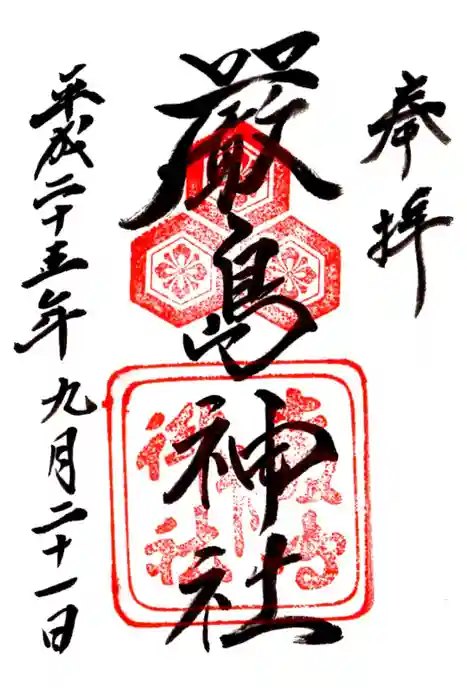 奉拝
厳島神社
平成二十五年九月二十一日